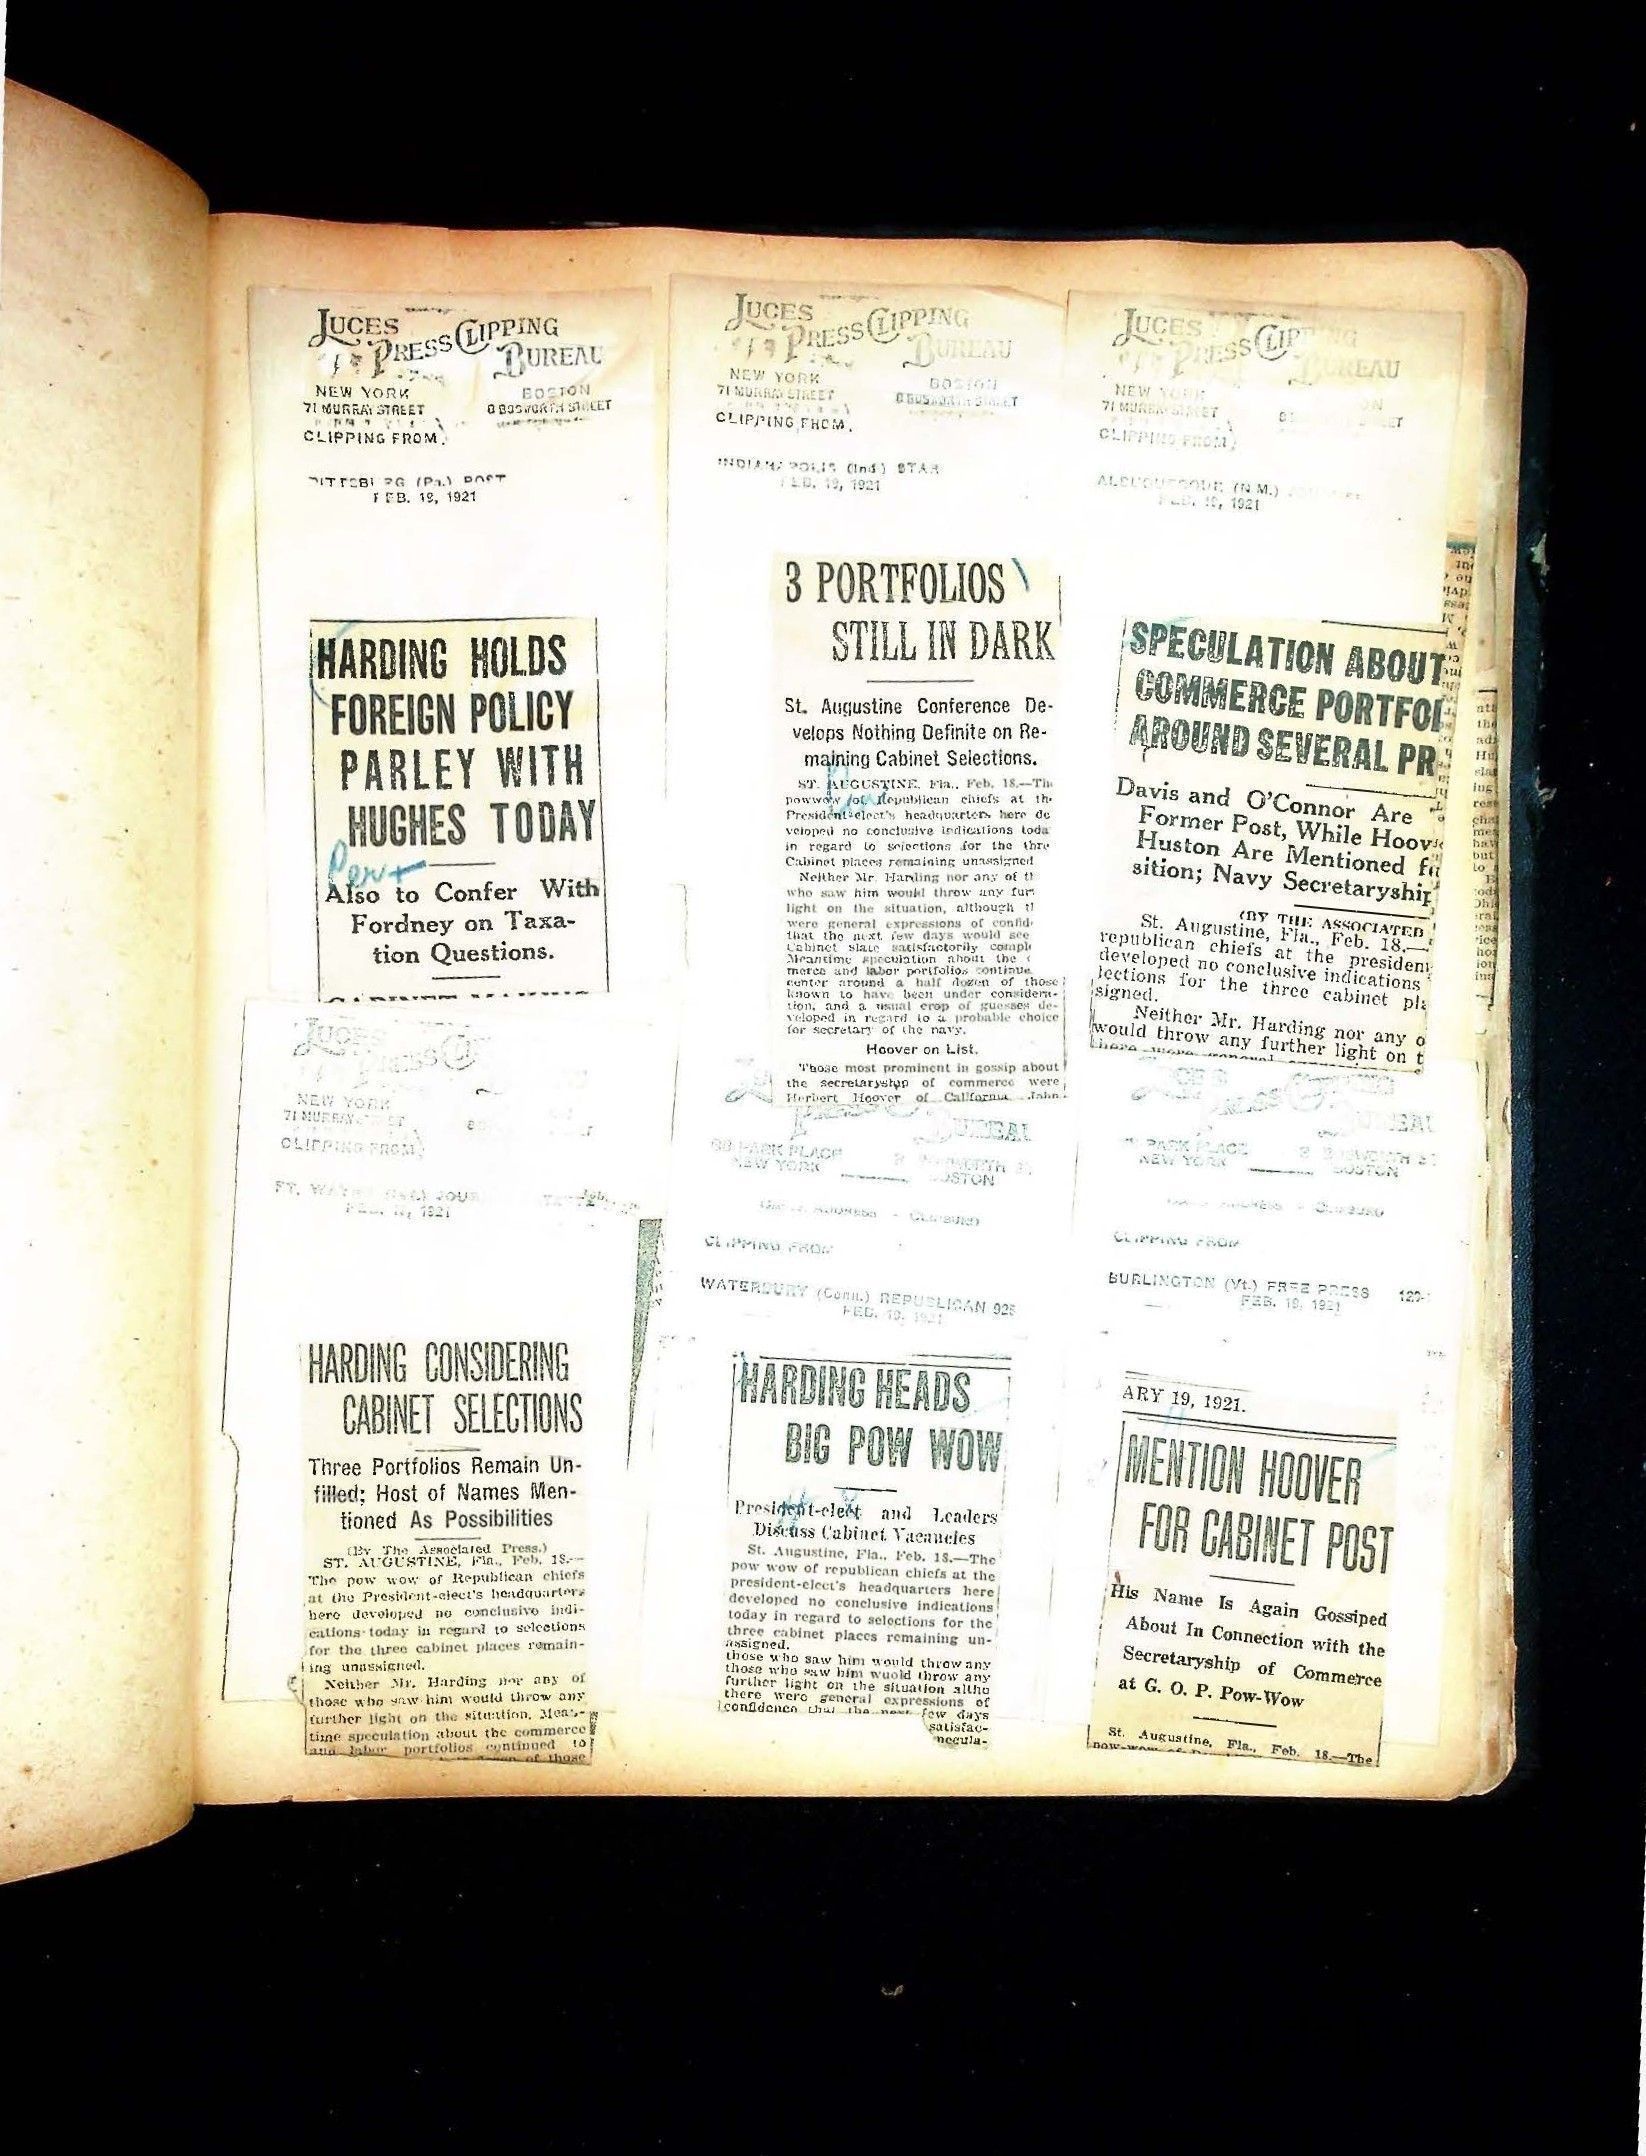 LUCES
PRESS CLIPPING
BUREAU
NEW YORK BOSTON
71 MURRAY STREET 8 BOSWORTH STREET
CLIPPING FROM
PITTSBURG (Pa.) POST
FEB. 19, 1921
HARDING HOLDS
FOREIGN POLICY
PARLEY WITH
HUGHES TODAY
Also to Confer With
Fordney on Taxa-
tion Questions.
LUCES
PRESS CLIPPING
BUREAU
NEW YORK BOSTON
71 MURRAY STREET 8 BOSWORTH STREET
CLIPPING FROM
INDIANAPOLIS (Ind.) STAR
FEB. 19, 1921
3 PORTFOLIOS
STILL IN DARK
St. Augustine Conference De-
velops Nothing Definite on Re-
maining Cabinet Selections.
ST. AUGUSTINE, Fla., Feb. 18.—Th
powwow of Republican chiefs at th
President-elect's headquarters here de
veloped no conclusive indications toda
in regard to selections for the thre
Cabinet places remaining unassigned
Neither Mr. Harding nor any of t
who saw him would throw any fur
light on the situation, although t
were general expressions of confid
that the next few days would see
Cabinet slate satisfactorily compl
Meantime speculation about the c
merce and labor portfolios continue
center around a half dozen of those
known to have been under considera-
tion, and a usual crop of guesses de-
veloped in regard to a probable choice
for secretary of the navy.
Hoover on List.
Those most prominent in gossip about
the secretaryship of commerce were
Herbert Hoover of California, John
LUCES
PRESS CLIPPING
BUREAU
NEW YORK
71 MURRAY STREET
CLIPPING FROM
ALBUQUERQUE (N.M.)
FEB. 19, 1921
SPECULATION ABOUT
COMMERCE PORTFOL
AROUND SEVERAL PR
Davis and O'Connor Are
Former Post, While Hoov
Huston Are Mentioned f
sition; Navy Secretaryship
(BY THE ASSOCIATED
St. Augustine, Fla., Feb. 18.—
republican chiefs at the president
developed no conclusive indications
lections for the three cabinet pla
signed.
Neither Mr. Harding nor any o
would throw any further light on t
there were general
LUCES
PRESS
NEW YORK
71 MURRAY STREET
CLIPPING FROM
FT. WAYNE (Ind.) JOUR
FEB. 19, 1921
HARDING CONSIDERING
CABINET SELECTIONS
Three Portfolios Remain Un-
filled; Host of Names Men-
tioned As Possibilities
(By The Associated Press.)
ST. AUGUSTINE, Fla., Feb. 18.—
The pow wow of Republican chiefs
at the President-elect's headquarters
here developed no conclusive indi-
cations today in regard to selections
for the three cabinet places remain-
ing unassigned.
Neither Mr. Harding nor any of
those who saw him would throw any
further light on the situation. Mean-
time speculation about the commerce
and labor portfolios continued to
of those
BUREAU
68 PARK PLACE 8 BOSWORTH ST.
NEW YORK BOSTON
CLIPPING FROM
WATERBURY (Conn.) REPUBLICAN 925
FEB. 19, 1921
HARDING HEADS
BIG POW WOW
President-elect and Leaders
Discuss Cabinet Vacancies
St. Augustine, Fla., Feb. 18.—The
pow wow of republican chiefs at the
president-elect's headquarters here
developed no conclusive indications
today in regard to selections for the
three cabinet places remaining un-
assigned.
those who saw him would throw any
those who saw him wuold throw any
further light on the situation altho
there were general expressions of
confidence that the next few days
satisfac-
pecula-
BUREAU
PARK PLACE 8 BOSWORTH ST
NEW YORK BOSTON
CLIPPING FROM
BURLINGTON (Vt.) FREE PRESS
FEB. 19, 1921
ARY 19, 1921.
MENTION HOOVER
FOR CABINET POST
His Name Is Again Gossiped
About In Connection with the
Secretaryship of Commerce
at G. O. P. Pow-Wow
St. Augustine, Fla., Feb. 18.—The
pow-wow of